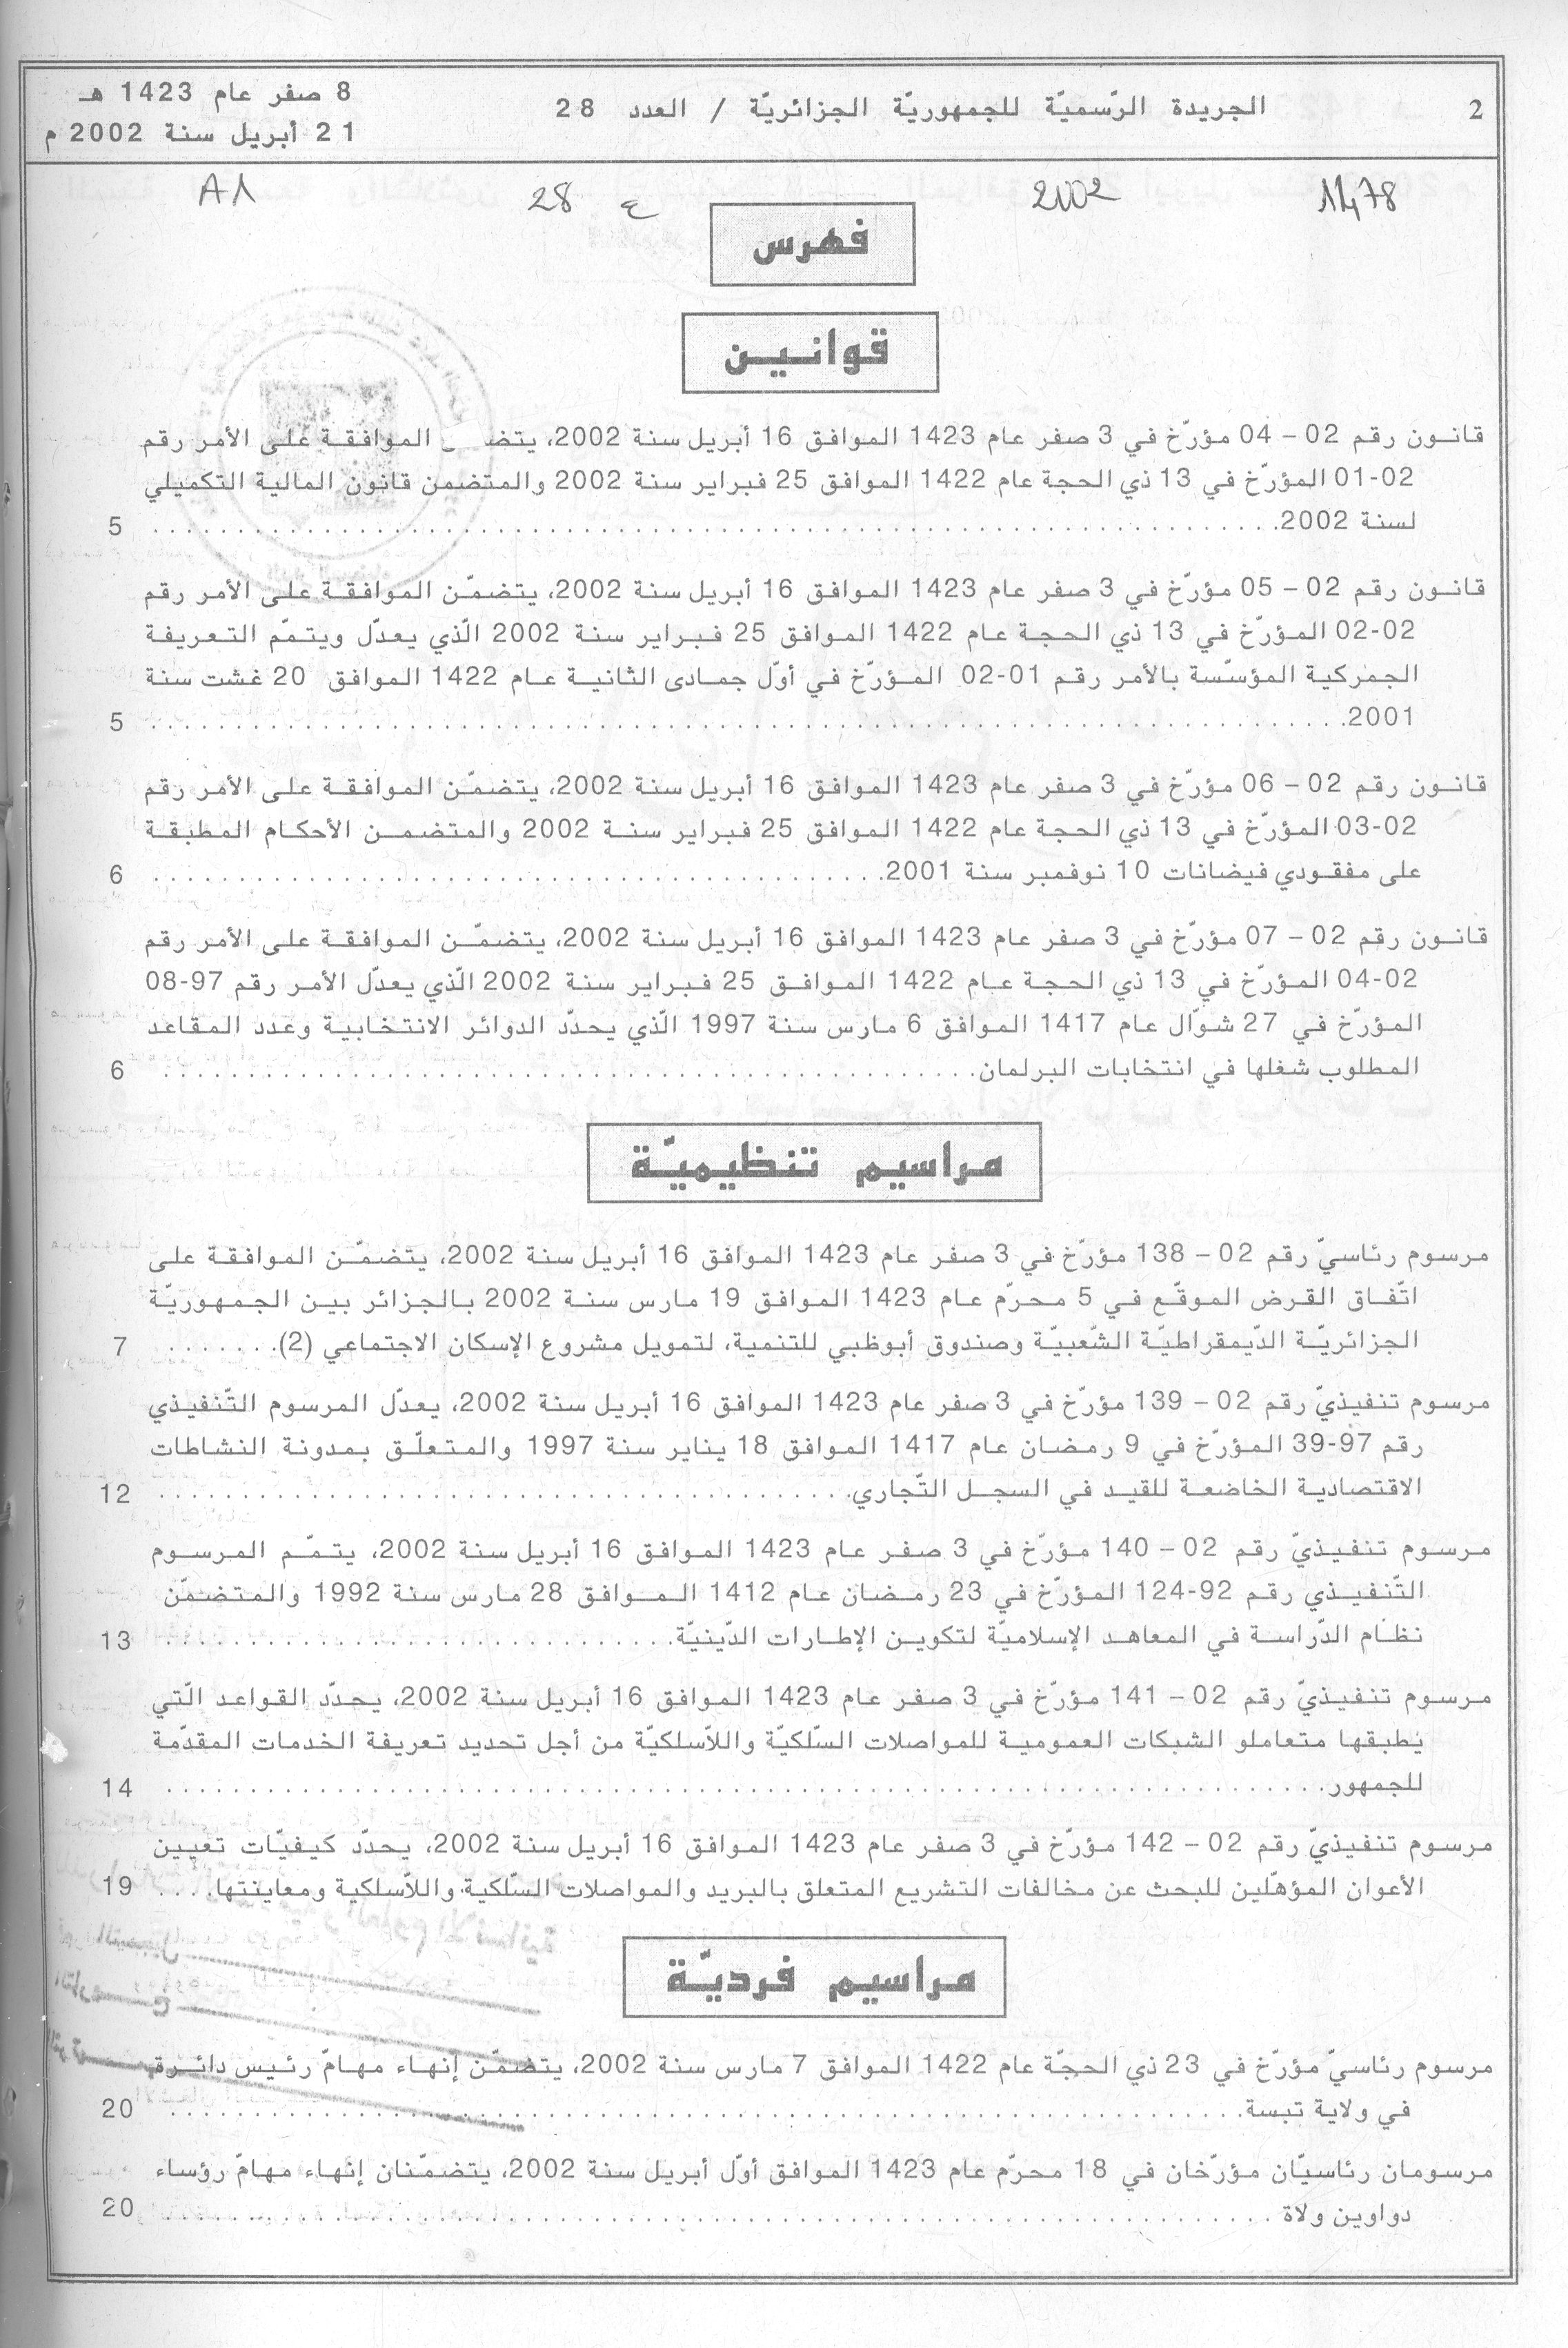 2
الجريدة الرّسميّة للجمهوريّة الجزائريّة / العدد 28
8 صفر عام 1423 هـ
21 أبريل سنة 2002 م
1478 2002 ع 28 A1
فهرس
قوانين
قانون رقم 02 – 04 مؤرّخ في 3 صفر عام 1423 الموافق 16 أبريل سنة 2002، يتضمن الموافقة على الأمر رقم
02-01 المؤرّخ في 13 ذي الحجة عام 1422 الموافق 25 فبراير سنة 2002 والمتضمن قانون المالية التكميلي
لسنة 2002. 5
قانون رقم 02 – 05 مؤرّخ في 3 صفر عام 1423 الموافق 16 أبريل سنة 2002، يتضمّن الموافقة على الأمر رقم
02-02 المؤرّخ في 13 ذي الحجة عام 1422 الموافق 25 فبراير سنة 2002 الّذي يعدّل ويتمّم التعريفة
الجمركية المؤسّسة بالأمر رقم 01-02 المؤرّخ في أوّل جمادى الثانية عام 1422 الموافق 20 غشت سنة
2001. 5
قانون رقم 02 – 06 مؤرّخ في 3 صفر عام 1423 الموافق 16 أبريل سنة 2002، يتضمّن الموافقة على الأمر رقم
02-03 المؤرّخ في 13 ذي الحجة عام 1422 الموافق 25 فبراير سنة 2002 والمتضمن الأحكام المطبقة
على مفقودي فيضانات 10 نوفمبر سنة 2001. 6
قانون رقم 02 – 07 مؤرّخ في 3 صفر عام 1423 الموافق 16 أبريل سنة 2002، يتضمّن الموافقة على الأمر رقم
02-04 المؤرّخ في 13 ذي الحجة عام 1422 الموافق 25 فبراير سنة 2002 الّذي يعدّل الأمر رقم 97-08
المؤرّخ في 27 شوّال عام 1417 الموافق 6 مارس سنة 1997 الّذي يحدّد الدوائر الانتخابية وعدد المقاعد
المطلوب شغلها في انتخابات البرلمان. 6
مراسيم تنظيميّة
مرسوم رئاسيّ رقم 02 – 138 مؤرّخ في 3 صفر عام 1423 الموافق 16 أبريل سنة 2002، يتضمّن الموافقة على
اتّفاق القرض الموقّع في 5 محرّم عام 1423 الموافق 19 مارس سنة 2002 بالجزائر بين الجمهوريّة
الجزائريّة الدّيمقراطيّة الشّعبيّة وصندوق أبوظبي للتنمية، لتمويل مشروع الإسكان الاجتماعي (2). 7
مرسوم تنفيذيّ رقم 02 – 139 مؤرّخ في 3 صفر عام 1423 الموافق 16 أبريل سنة 2002، يعدّل المرسوم التّنفيذي
رقم 97-39 المؤرّخ في 9 رمضان عام 1417 الموافق 18 يناير سنة 1997 والمتعلّق بمدونة النشاطات
الاقتصادية الخاضعة للقيد في السجل التّجاري. 12
مرسوم تنفيذيّ رقم 02 – 140 مؤرّخ في 3 صفر عام 1423 الموافق 16 أبريل سنة 2002، يتمّم المرسوم
التّنفيذي رقم 92-124 المؤرّخ في 23 رمضان عام 1412 الموافق 28 مارس سنة 1992 والمتضمّن
نظام الدّراسة في المعاهد الإسلاميّة لتكوين الإطارات الدّينيّة. 13
مرسوم تنفيذيّ رقم 02 – 141 مؤرّخ في 3 صفر عام 1423 الموافق 16 أبريل سنة 2002، يحدّد القواعد الّتي
يطبقها متعاملو الشبكات العمومية للمواصلات السّلكيّة واللاّسلكيّة من أجل تحديد تعريفة الخدمات المقدّمة
للجمهور. 14
مرسوم تنفيذيّ رقم 02 – 142 مؤرّخ في 3 صفر عام 1423 الموافق 16 أبريل سنة 2002، يحدّد كيفيّات تعيين
الأعوان المؤهّلين للبحث عن مخالفات التشريع المتعلق بالبريد والمواصلات السّلكية واللاّسلكية ومعاينتها. 19
مراسيم فرديّة
مرسوم رئاسيّ مؤرّخ في 23 ذي الحجّة عام 1422 الموافق 7 مارس سنة 2002، يتضمّن إنهاء مهامّ رئيس دائرة
في ولاية تبسة. 20
مرسومان رئاسيّان مؤرّخان في 18 محرّم عام 1423 الموافق أوّل أبريل سنة 2002، يتضمّنان إنهاء مهامّ رؤساء
دواوين ولاة 20